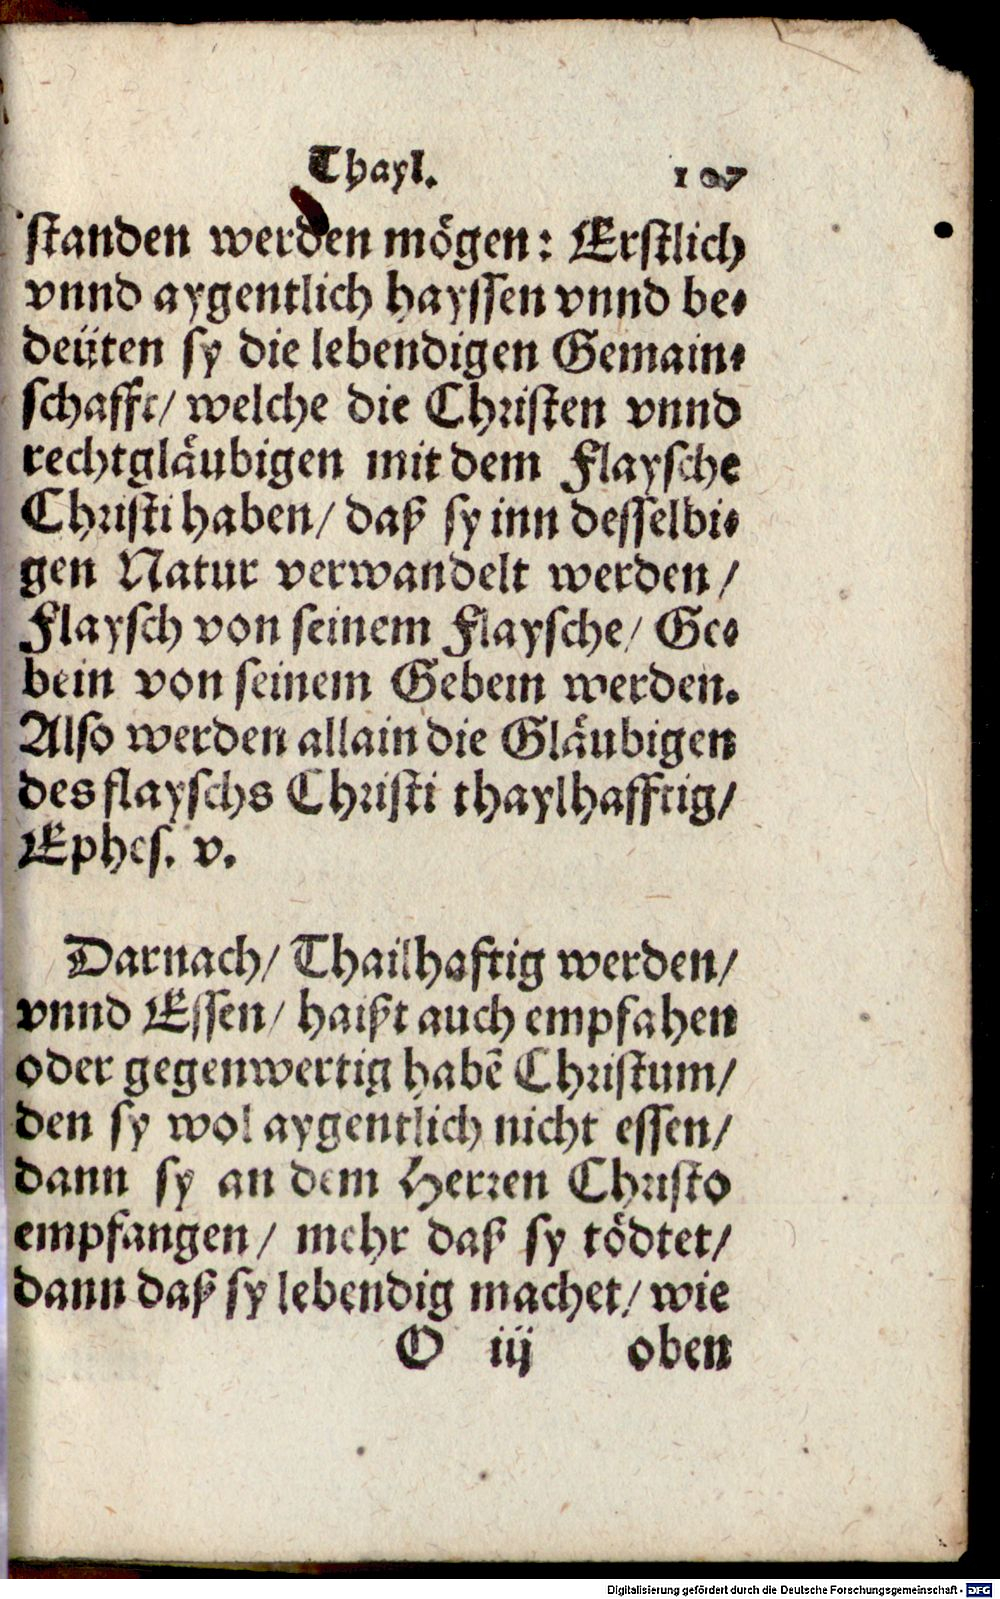 Thayl. 107
standen werden mögen: Erstlich
vnnd aygentlich hayssen vnnd be-
deüten sy die lebendigen Gemain-
schafft/ welche die Christen vnnd
rechtgläubigen mit dem Flaysche
Christi haben/ daß sy inn desselbi-
gen Natur verwandelt werden/
Flaysch von seinem Flaysche/ Ge-
bein von seinem Gebein werden.
Also werden allain die Gläubigen
des flayschs Christi thaylhafftig/
Ephes. v.
Darnach/ Thailhaftig werden/
vnnd Essen/ haißt auch empfahen
oder gegenwertig habẽ Christum/
den sy wol aygentlich nicht essen/
dann sy an dem Herren Christo
empfangen/ mehr daß sy tödtet/
dann daß sy lebendig machet/ wie
O iij oben
Digitalisierung gefördert durch die Deutsche Forschungsgemeinschaft - DFG